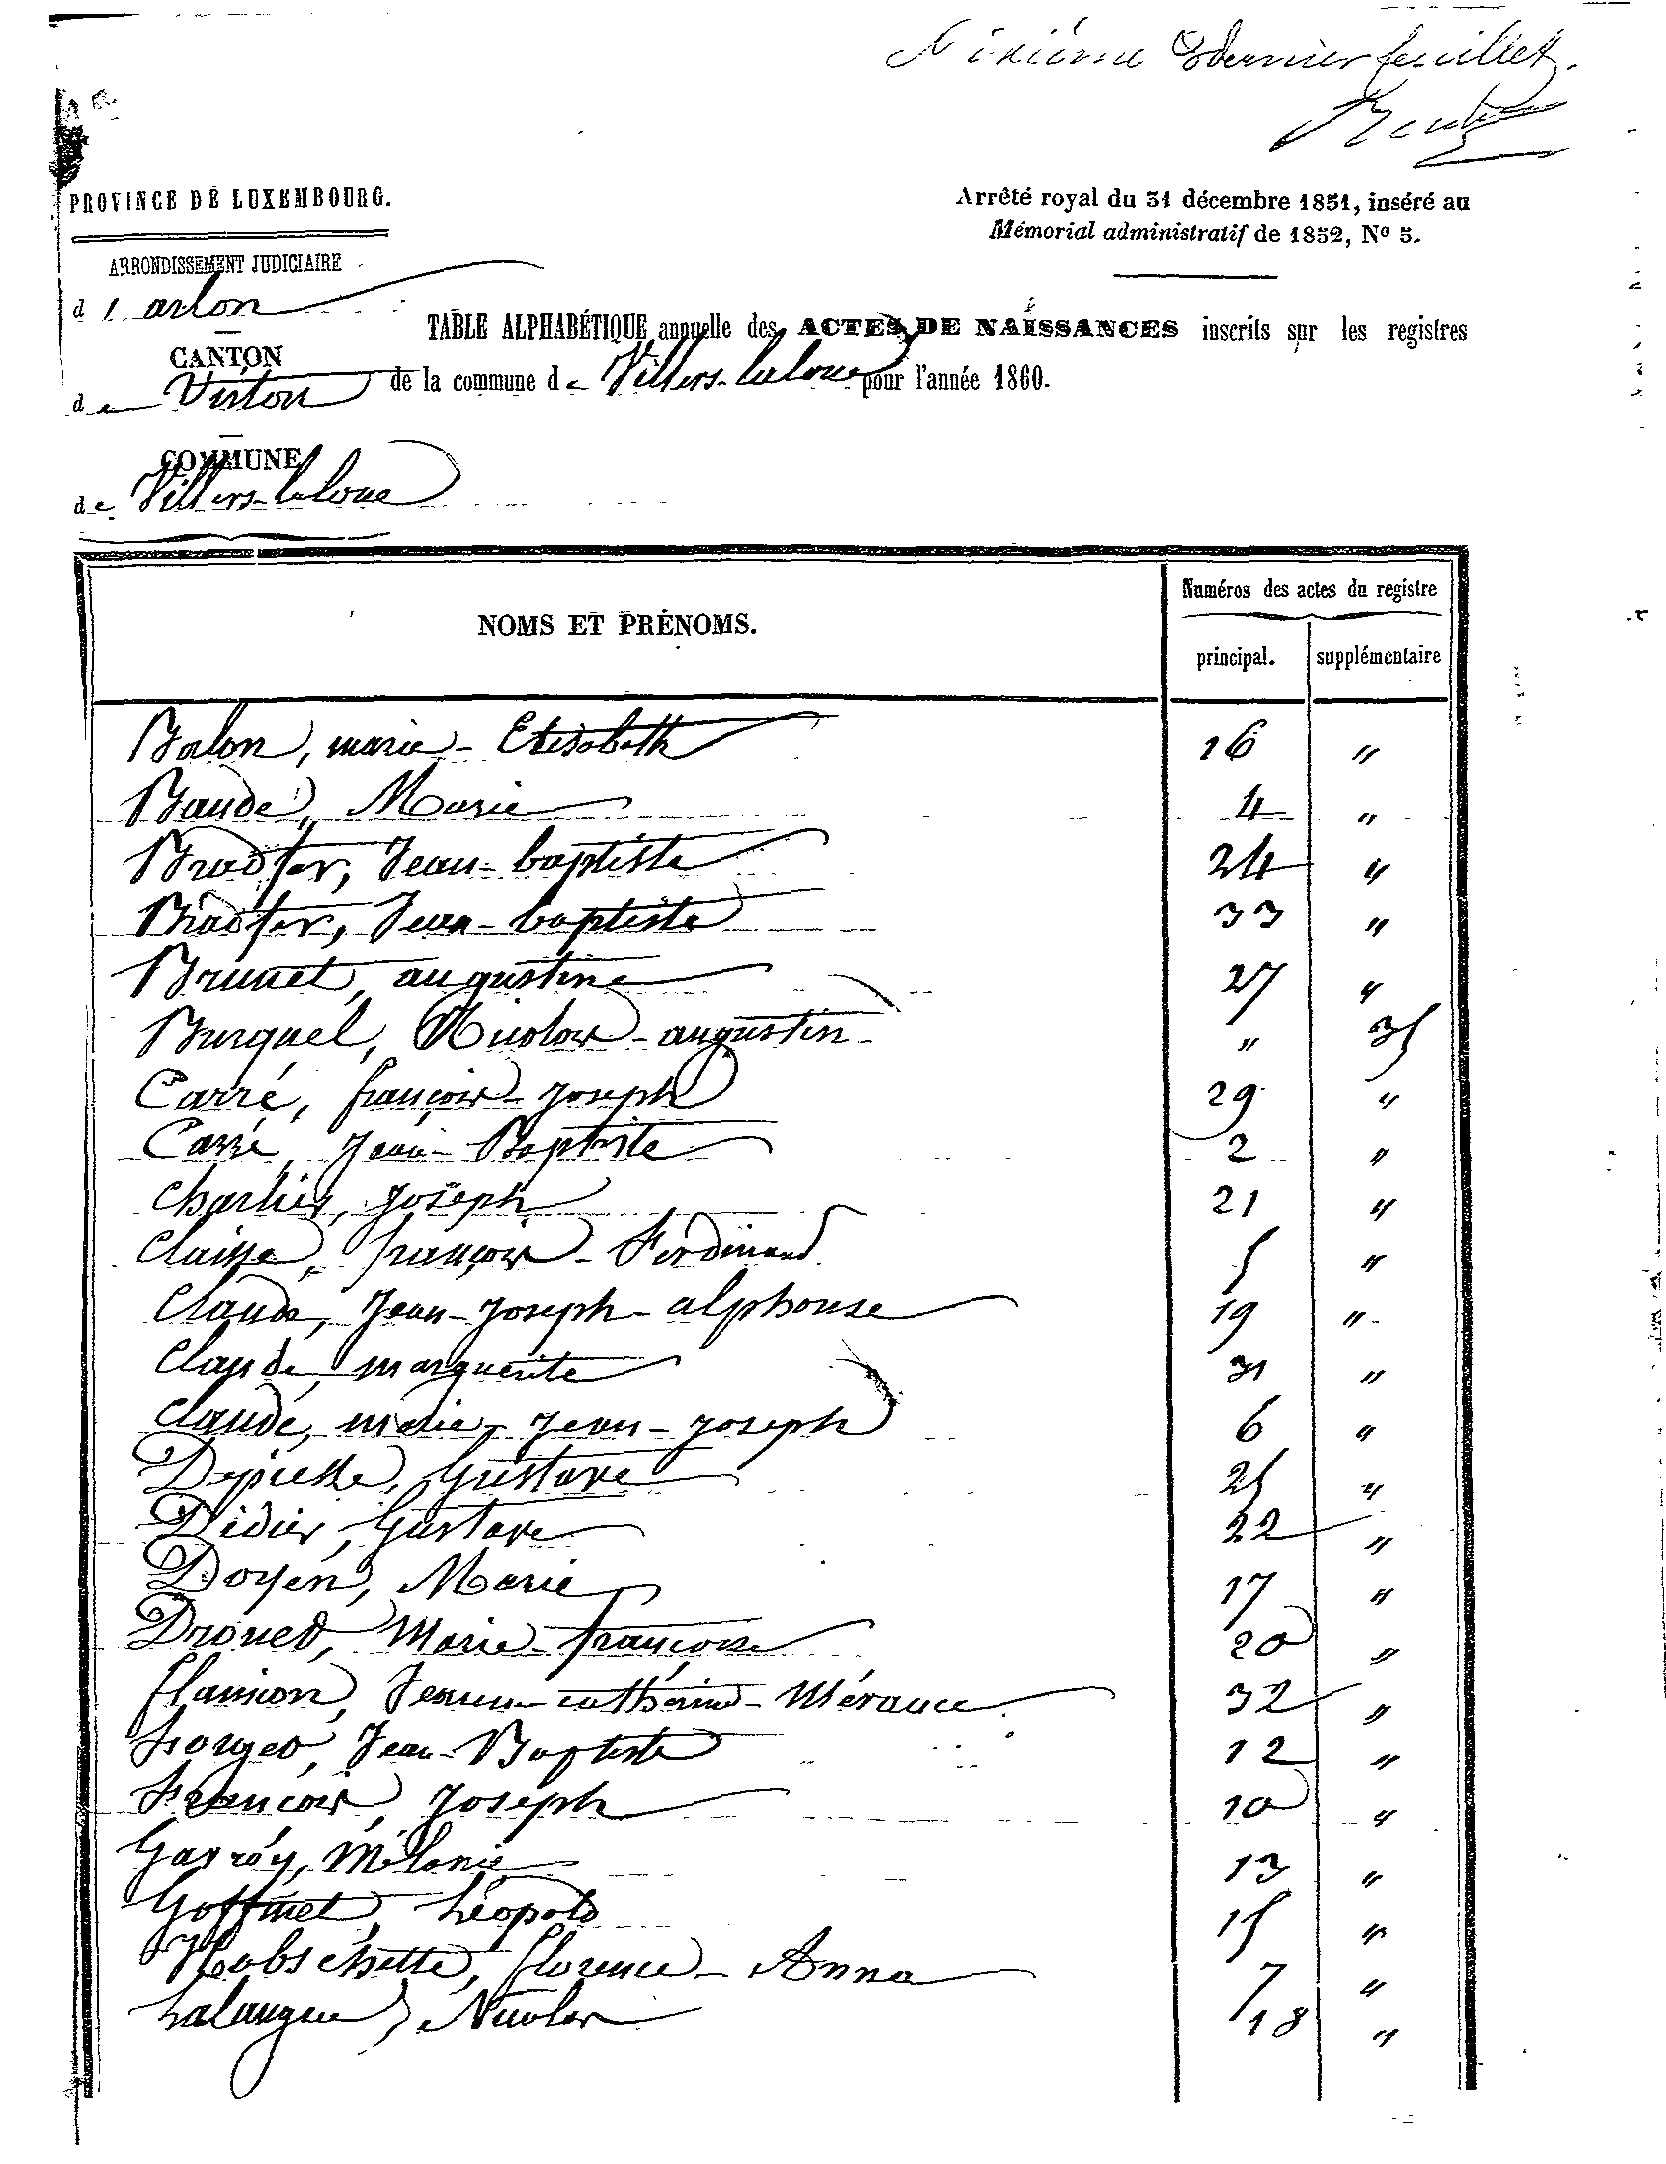 dernier feuillet.
PROVINCE DE LUXEMBOURG.
Arrêté royal du 31 décembre 1851, inséré au
Mémorial administratif de 1852, No 5.
ARRONDISSEMENT JUDICIAIRE
d'arlon
TABLE ALPHABÉTIQUE annuelle des ACTES DE NAISSANCES inscrits sur les registres
CANTON
de Virton
de la commune de Villers-laloue pour l'année 1860.
COMMUNE
de Villers-laloue
NOMS ET PRÉNOMS.
Numéros des actes du registre
principal. supplémentaire
Balon, marie-Elisabeth 16 "
Baudé, Marie 4 "
Bradfer, Jean-baptiste 24 "
Bradfer, Jean-baptiste 33 "
Brunet, augustine 27 "
Burquel, Nicolas-augustin " 35
Carré, françois-joseph 29 "
Carré, Jean-Baptiste 2 "
Charlier, joseph 21 "
Claisse, françois-Ferdinand 5 "
Claude, Jean-joseph-alphonse 19 "
Claude, marguerite 31 "
Claude, marie-Jean-joseph 6 "
Depiesse, Gustave 25 "
Didier, Gustave 22 "
Doyen, Marie 17 "
Drouet, Marie-françoise 20 "
flamion, Jeanne-cathérine-Mérance 32 "
forget, Jean-Baptiste 12 "
François, Joseph 10 "
Gavroy, Mélanie 13 "
Goffinet, Léopold 15 "
Habschette, florence-Anna 7 "
Lalangue, Nicolas 18 "